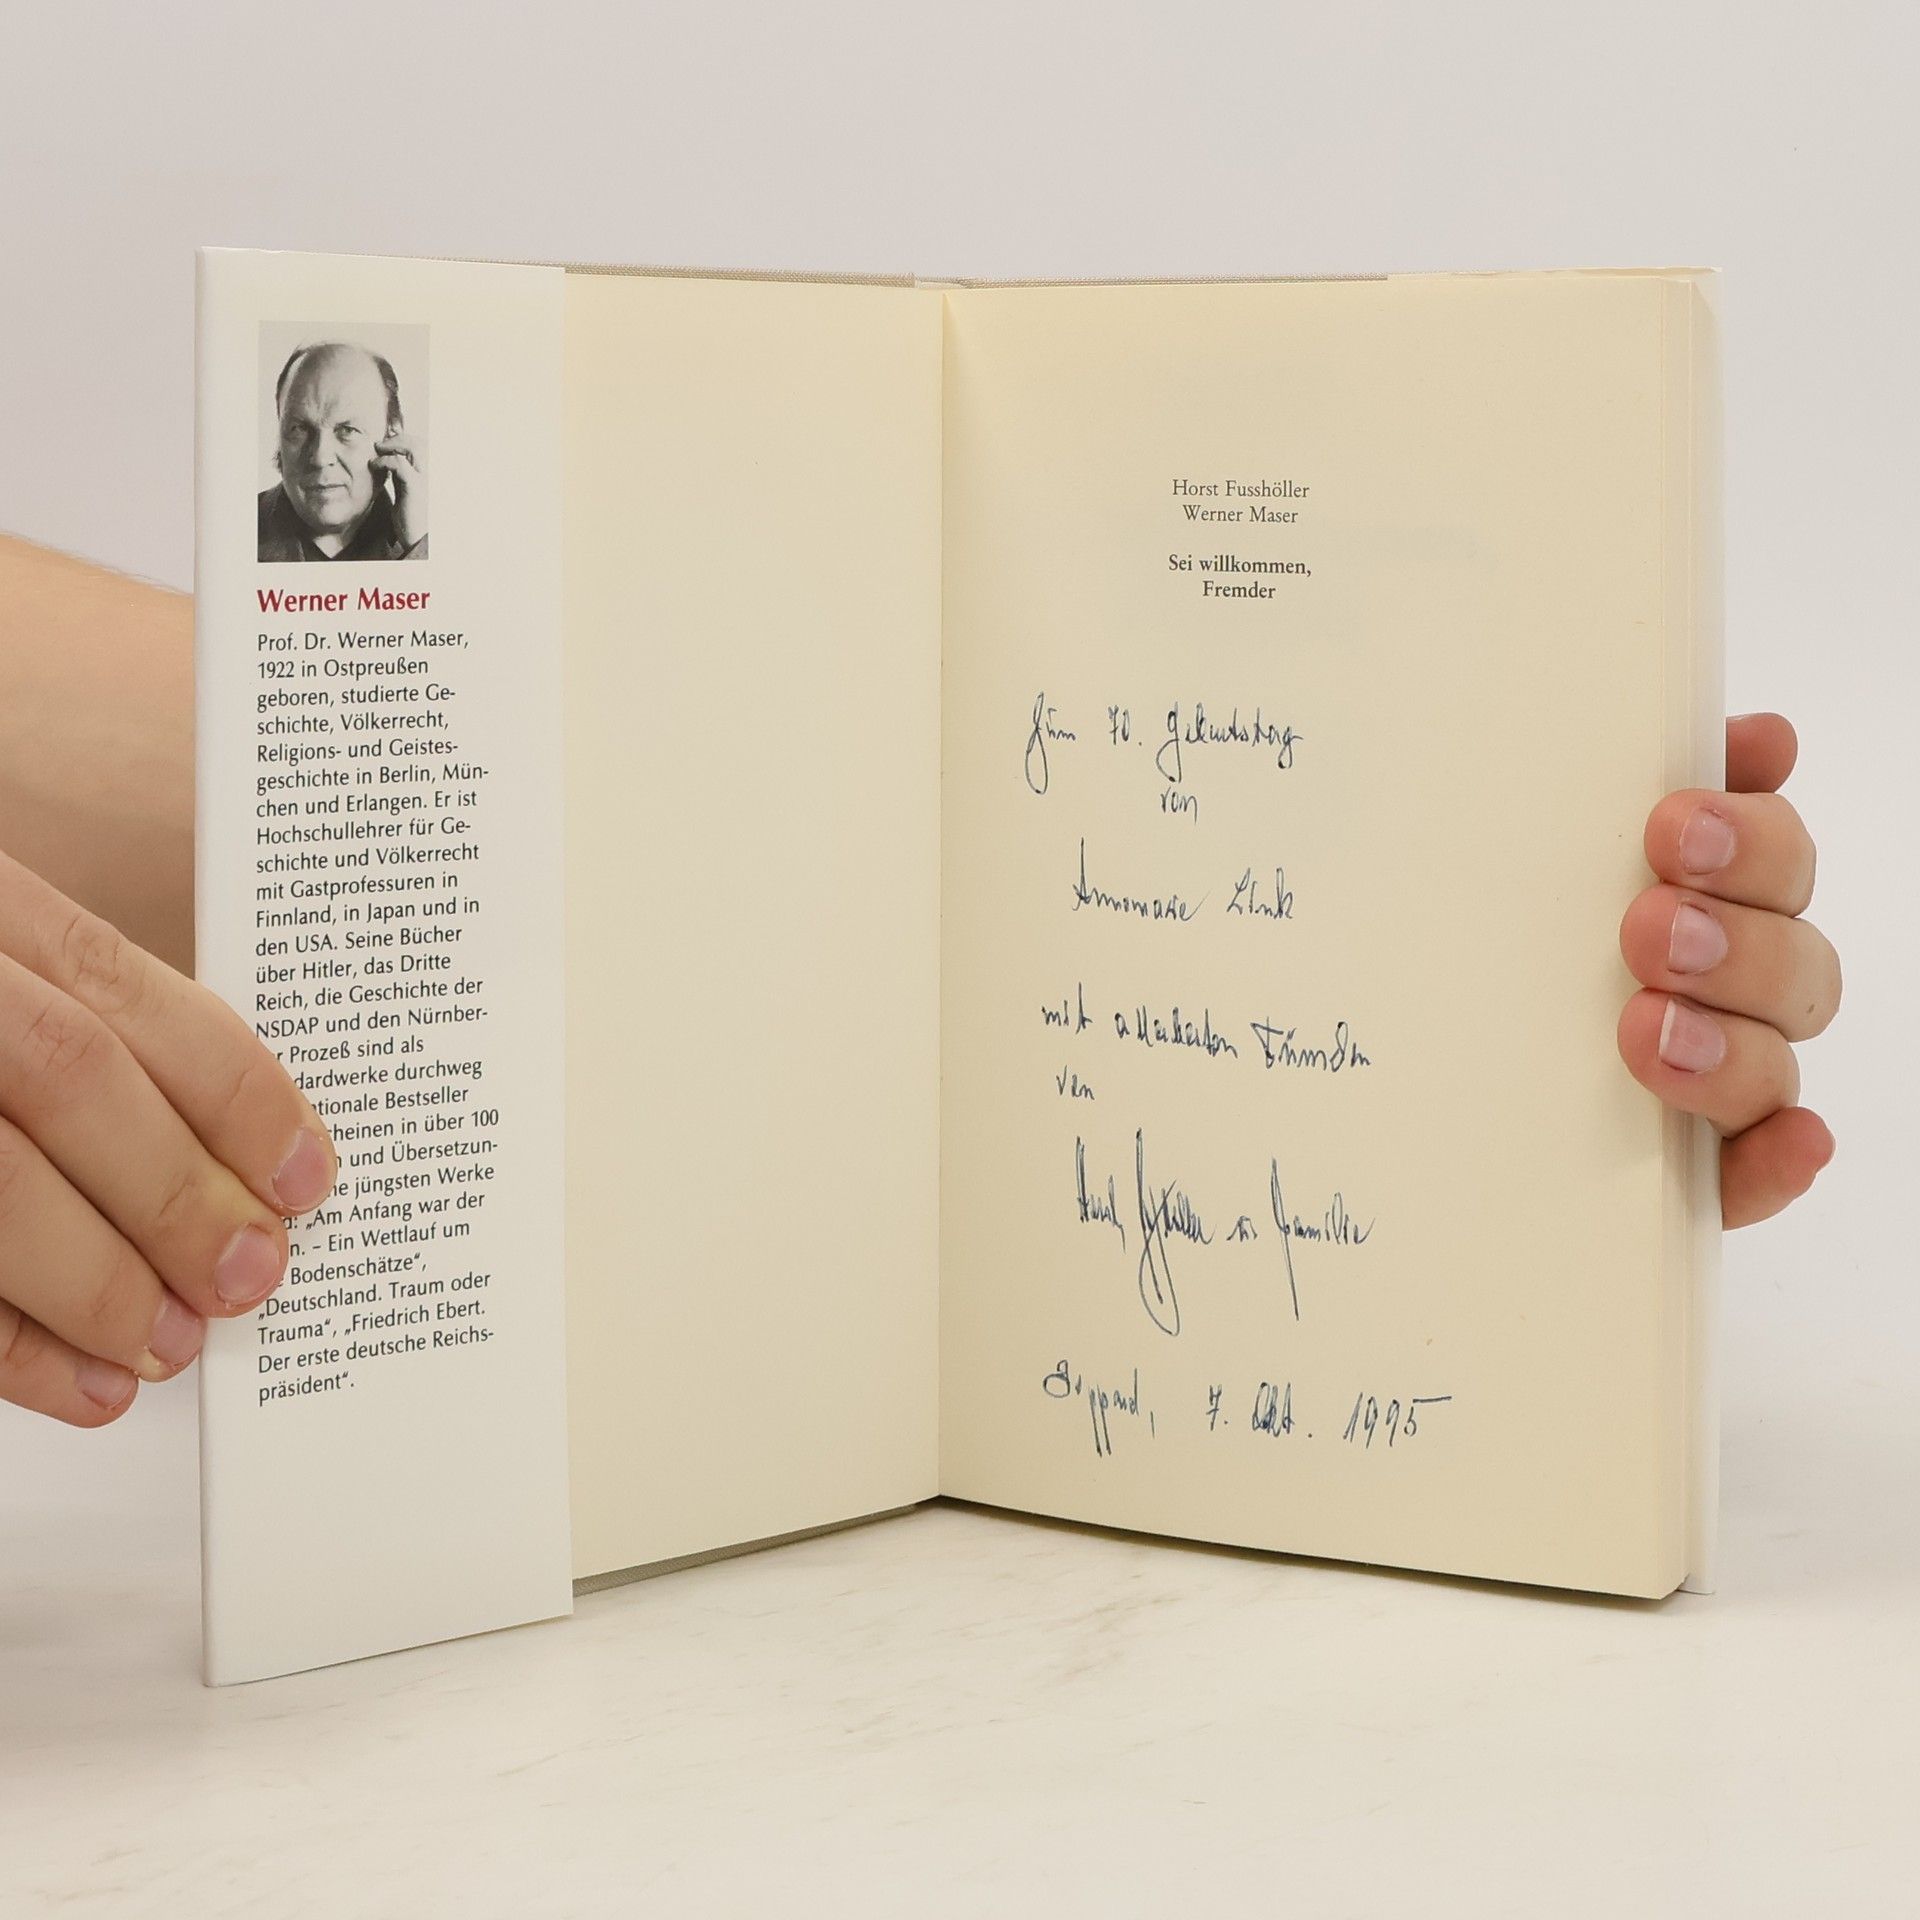 Werner Maser
Prof. Dr. Werner Maser,
1922 in Ostpreußen
geboren, studierte Ge-
schichte, Völkerrecht,
Religions- und Geistes-
geschichte in Berlin, Mün-
chen und Erlangen. Er ist
Hochschullehrer für Ge-
schichte und Völkerrecht
mit Gastprofessuren in
Finnland, in Japan und in
den USA. Seine Bücher
über Hitler, das Dritte
Reich, die Geschichte der
NSDAP und den Nürnber-
r Prozeß sind als
dardwerke durchweg
tionale Bestseller
cheinen in über 100
n und Übersetzun-
ne jüngsten Werke
d: „Am Anfang war der
n. – Ein Wettlauf um
e Bodenschätze“,
„Deutschland. Traum oder
Trauma“, „Friedrich Ebert.
Der erste deutsche Reichs-
präsident“.
Horst Fusshöller
Werner Maser
Sei willkommen,
Fremder
Zum 70. Geburtstag
von
Annemarie Link
mit
von
Familie
Boppard, 7. Okt. 1995